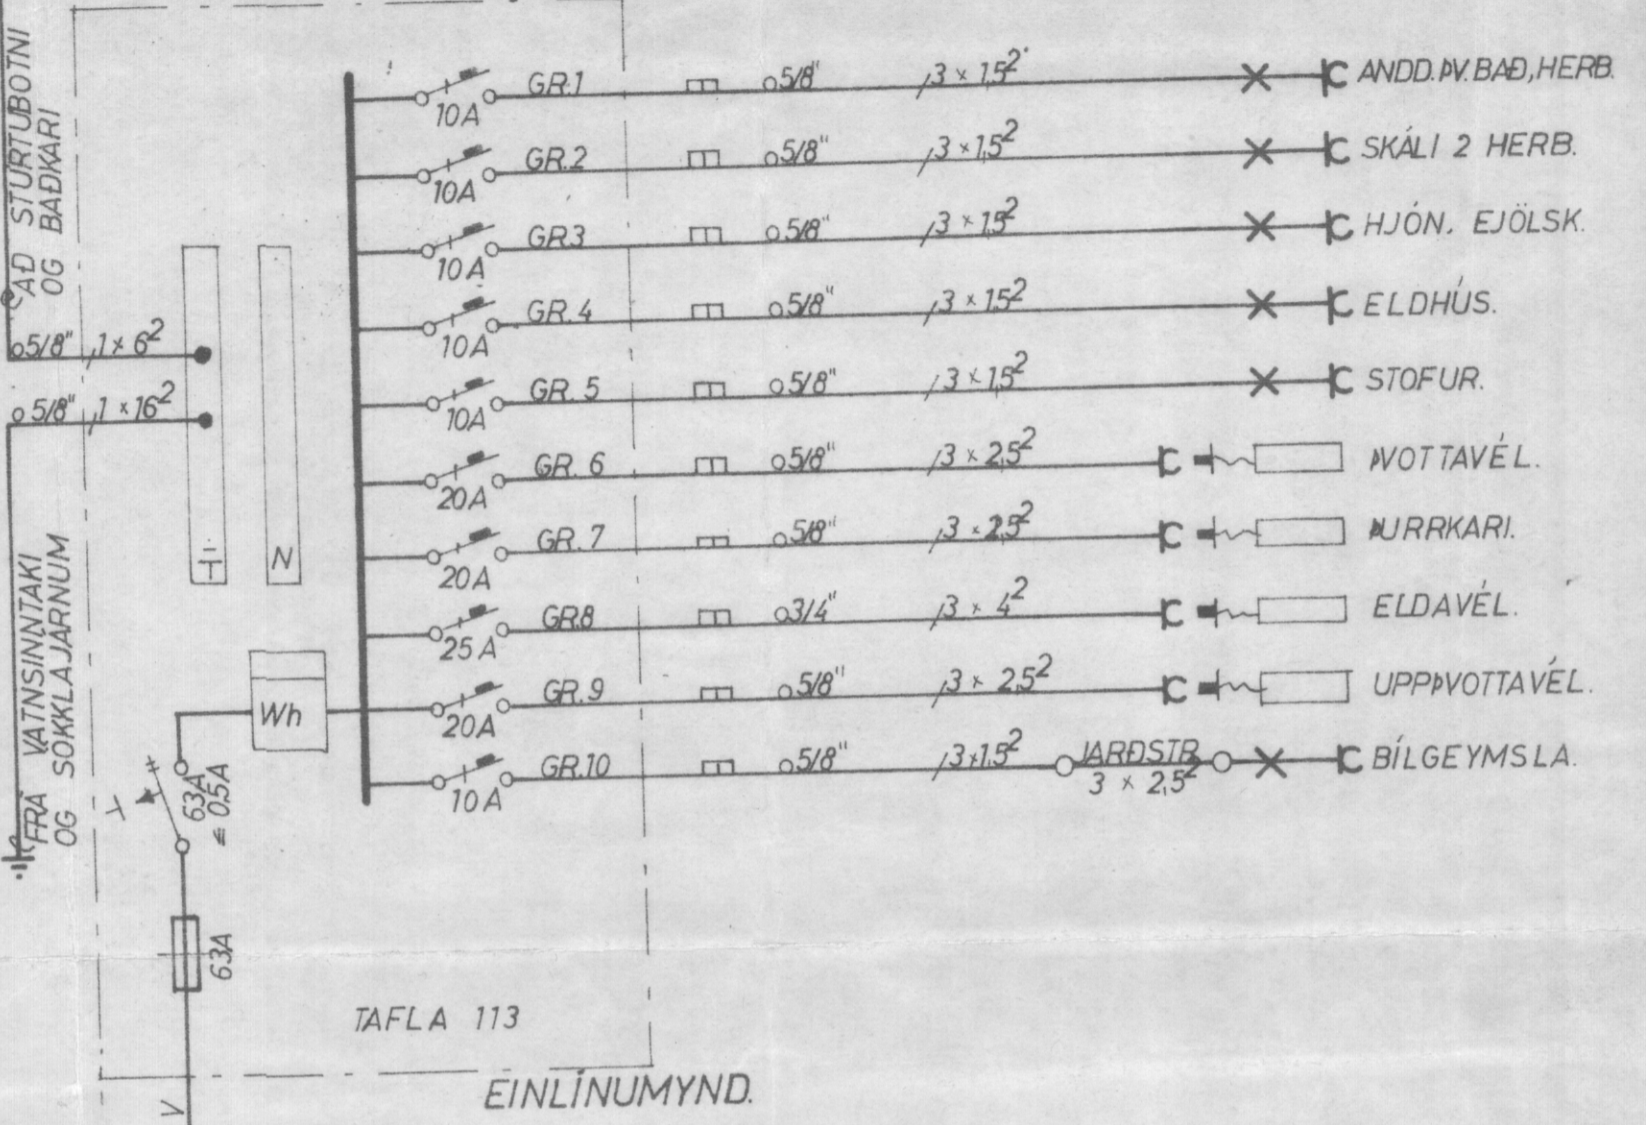 AÐ STURTUBOTNI
OG BAÐKARI
o 5/8" 1 × 6²
o 5/8" 1 × 16²
FRÁ VATNSINNTAKI
OG SÖKKLAJÁRNUM
N
Wh
63A
≤ 0,5A
63A
V
10A GR.1 o 5/8" 3 × 1,5² ANDD. ÞV. BAÐ, HERB.
10A GR.2 o 5/8" 3 × 1,5² SKÁLI 2 HERB.
10A GR.3 o 5/8" 3 × 1,5² HJÓN. EJÖLSK.
10A GR.4 o 5/8" 3 × 1,5² ELDHÚS.
10A GR. 5 o 5/8" 3 × 1,5² STOFUR.
20A GR. 6 o 5/8" 3 × 2,5² ÞVOTTAVÉL.
20A GR. 7 o 5/8" 3 × 2,5² ÞURRKARI.
25A GR.8 o 3/4" 3 × 4² ELDAVÉL.
20A GR.9 o 5/8" 3 × 2,5² UPPÞVOTTAVÉL.
10A GR.10 o 5/8" 3×1,5² JARÐSTR. 3 × 2,5² BÍLGEYMSLA.
TAFLA 113
EINLÍNUMYND.